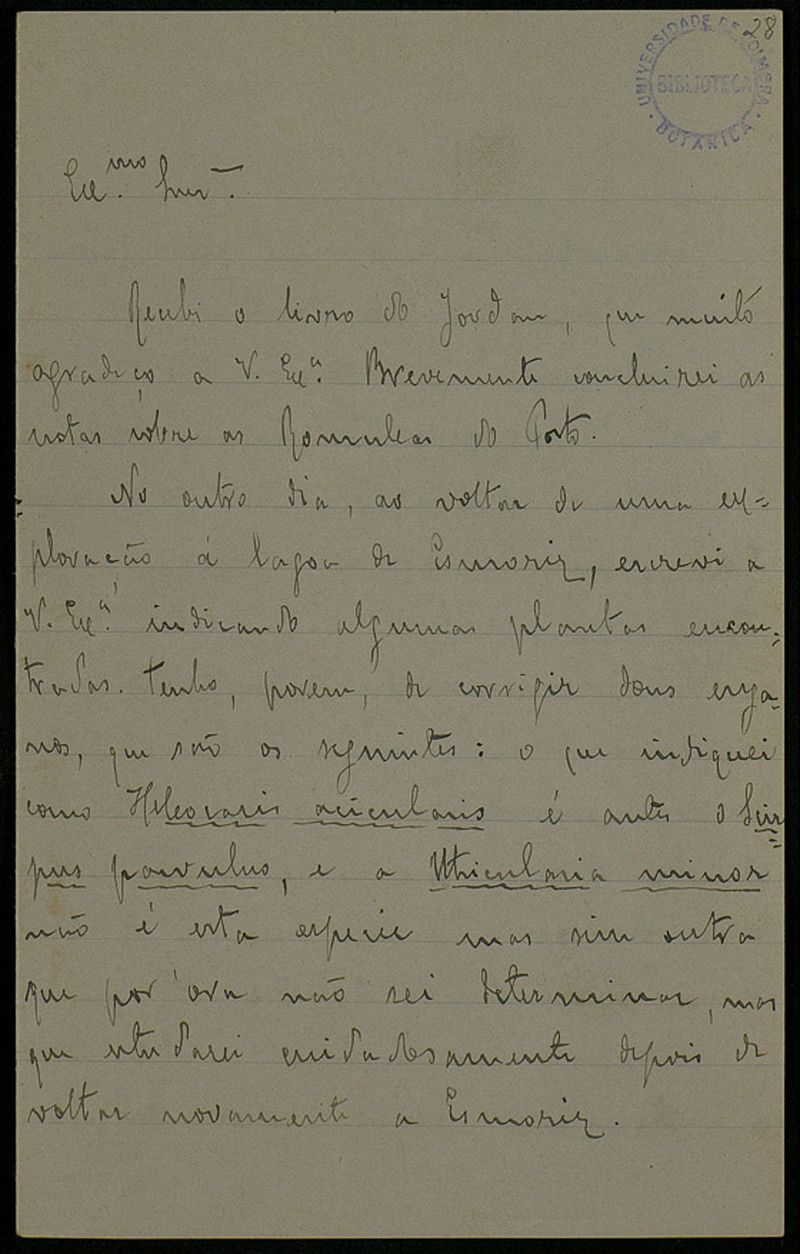 28
UNIVERSIDADE DE COIMBRA
BIBLIOTECA
BOTANICA
Exc.mo Snr.
Recebi o livro do Jordan, que muito
agradeço a V. Exc.a Brevemente concluirei as
notas sobre as Romuleas do Porto.
No outro dia, ao voltar de uma ex-
ploração á lagoa de Esmoriz, escrevi a
V. Exc.a indicando algumas plantas encon-
tradas. Tenho, porem, de corrigir dous enga-
nos, que são os seguintes: o que indiquei
como Heleocaris acicularis é antes o Scir-
pus parvulus, e a Utricularia minor
não é esta especie mas sim outra
que por'ora não sei determinar, mas
que estudarei cuidadosamente depois de
voltar novamente a Esmoriz.